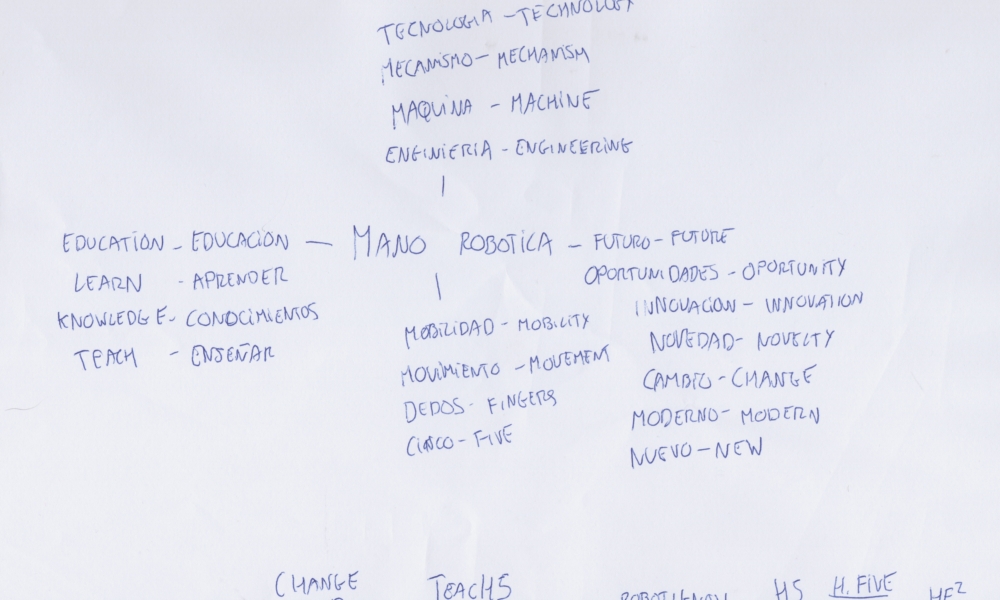 TECNOLOGIA - TECHNOLOGY
MECANISMO - MECHANISM
MAQUINA - MACHINE
ENGINIERIA - ENGINEERING
EDUCATION - EDUCACION - MANO ROBOTICA - FUTURO - FUTURE
LEARN - APRENDER
KNOWLEDGE - CONOCIMIENTOS
TEACH - ENSEÑAR
OPORTUNIDADES - OPORTUNITY
INNOVACION - INNOVATION
NOVEDAD - NOVELTY
CAMBIO - CHANGE
MODERNO - MODERN
NUEVO - NEW
MOBILIDAD - MOBILITY
MOVIMIENTO - MOVEMENT
DEDOS - FINGERS
CINCO - FIVE
CHANGE TEACH5 H5 H. FIVE HF2